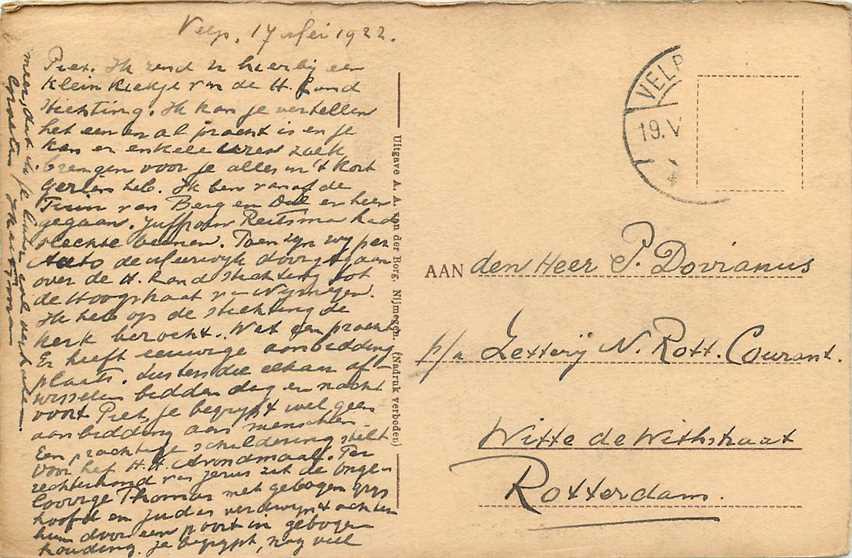 Velp, 17 Mei 1922.
Piet. Ik zend u hierbij een
klein kiekje van de H. Land
stichting. Ik kan je vertellen
het een en al pracht is en je
kan er enkele uren zoek
brengen voor je alles in 't kort
gezien heb. Ik ben vanaf de
Tuin van Berg en Dal er heen
gegaan. Juffrouw Reitsma had
slechte beenen. Toen zijn wij per
Auto de doorgegaan
over de H. Land stichting tot
de Hoogstraat v. Nijmegen.
Ik heb op de stichting de
kerk bezocht. Wat een pracht
Er heeft eeuwige aanbidding
plaats. Zusters die elkaar af-
wisselen bidden dag en nacht
voort Piet, je begrijpt wel geen
aanbidding aan menschen.
Een prachtige schildering stelt
voor het H. H. Avondmaal. Ter
rechterhand van Jezus zit de onge-
loovige Thomas met gebogen grijs
hoofd en Judas verdwijnt achter
hem door een poort in gebogen
houding. Je begrijpt, nog veel
meer, dat is je later zal vertellen.
Groeten
Uitgave A. A. van der Borg, Nijmegen. (Nadruk verboden)
VELP
19.V
AAN den Heer P. Dovianus
p/a Zetterij N. Rott. Courant.
Witte de Withstraat
Rotterdam.